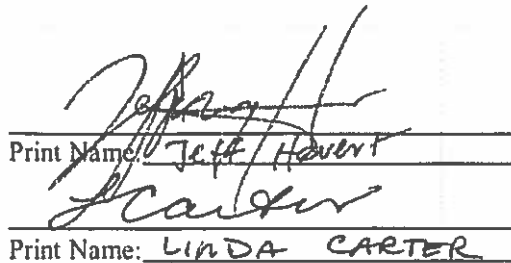 Print Name: Jeff Havert
LCarter
Print Name: LINDA CARTER